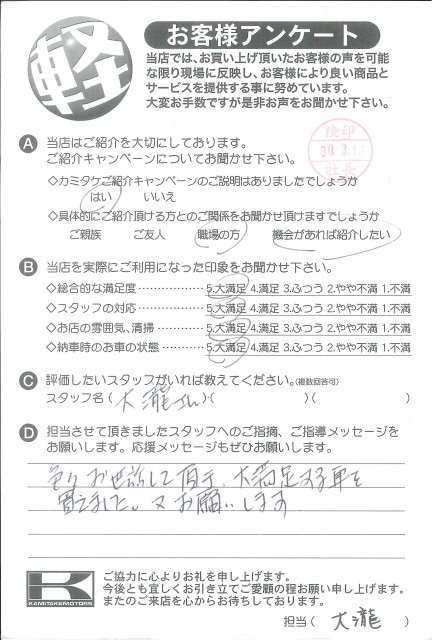 軽
お客様アンケート
当店では、お買い上げ頂いたお客様の声を可能
な限り現場に反映し、お客様により良い商品と
サービスを提供する事に努めています。
大変お手数ですが是非お声をお聞かせ下さい。
検印
30.3.
社長
A 当店はご紹介を大切にしております。
ご紹介キャンペーンについてお聞かせ下さい。
◇カミタケご紹介キャンペーンのご説明はありましたでしょうか
はい いいえ
◇具体的にご紹介頂ける方とのご関係をお聞かせ頂けますでしょうか
ご親族 ご友人 職場の方 機会があれば紹介したい
B 当店を実際にご利用になった印象をお聞かせ下さい。
◇総合的な満足度 5.大満足 4.満足 3.ふつう 2.やや不満 1.不満
◇スタッフの対応 5.大満足 4.満足 3.ふつう 2.やや不満 1.不満
◇お店の雰囲気、清掃 5.大満足 4.満足 3.ふつう 2.やや不満 1.不満
◇納車時のお車の状態 5.大満足 4.満足 3.ふつう 2.やや不満 1.不満
C 評価したいスタッフがいれば教えてください。(複数回答可)
スタッフ名 ( 大瀧さん )( )( )
D 担当させて頂きましたスタッフへのご指摘、ご指導メッセージを
お願いします。応援メッセージもぜひお願いします。
色々お世話して頂き、大満足する車を
買えました。又お願いします
K
KAMITAKEMOTORS
ご協力に心よりお礼を申し上げます。
今後とも宜しくお引き立てご愛顧の程お願い申し上げます。
またのご来店を心からお待ちしております。
担当 ( 大瀧 )